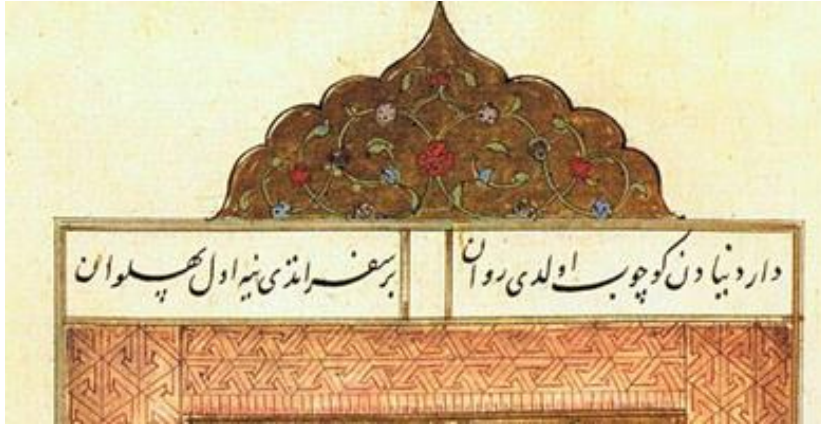 دار دنیادن کوچوب اولدی روان
بر سفر ایتدی ینه اول پهلوان